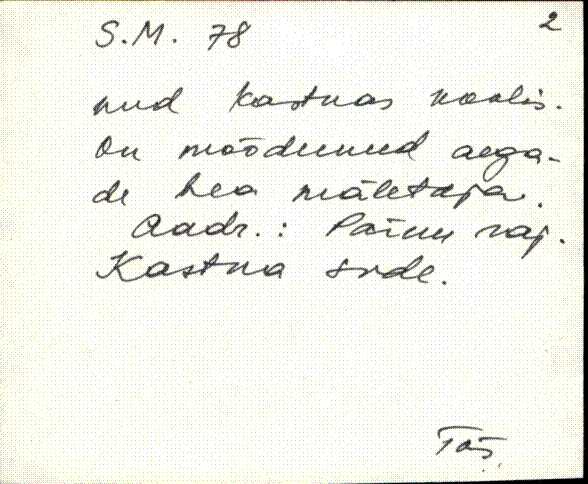 S.M. 78 2
nud Kastnas koolis.
On möödunud aega-
de hea mäletaja.
Aadr.: Pärnu raj.
Kastna svde.